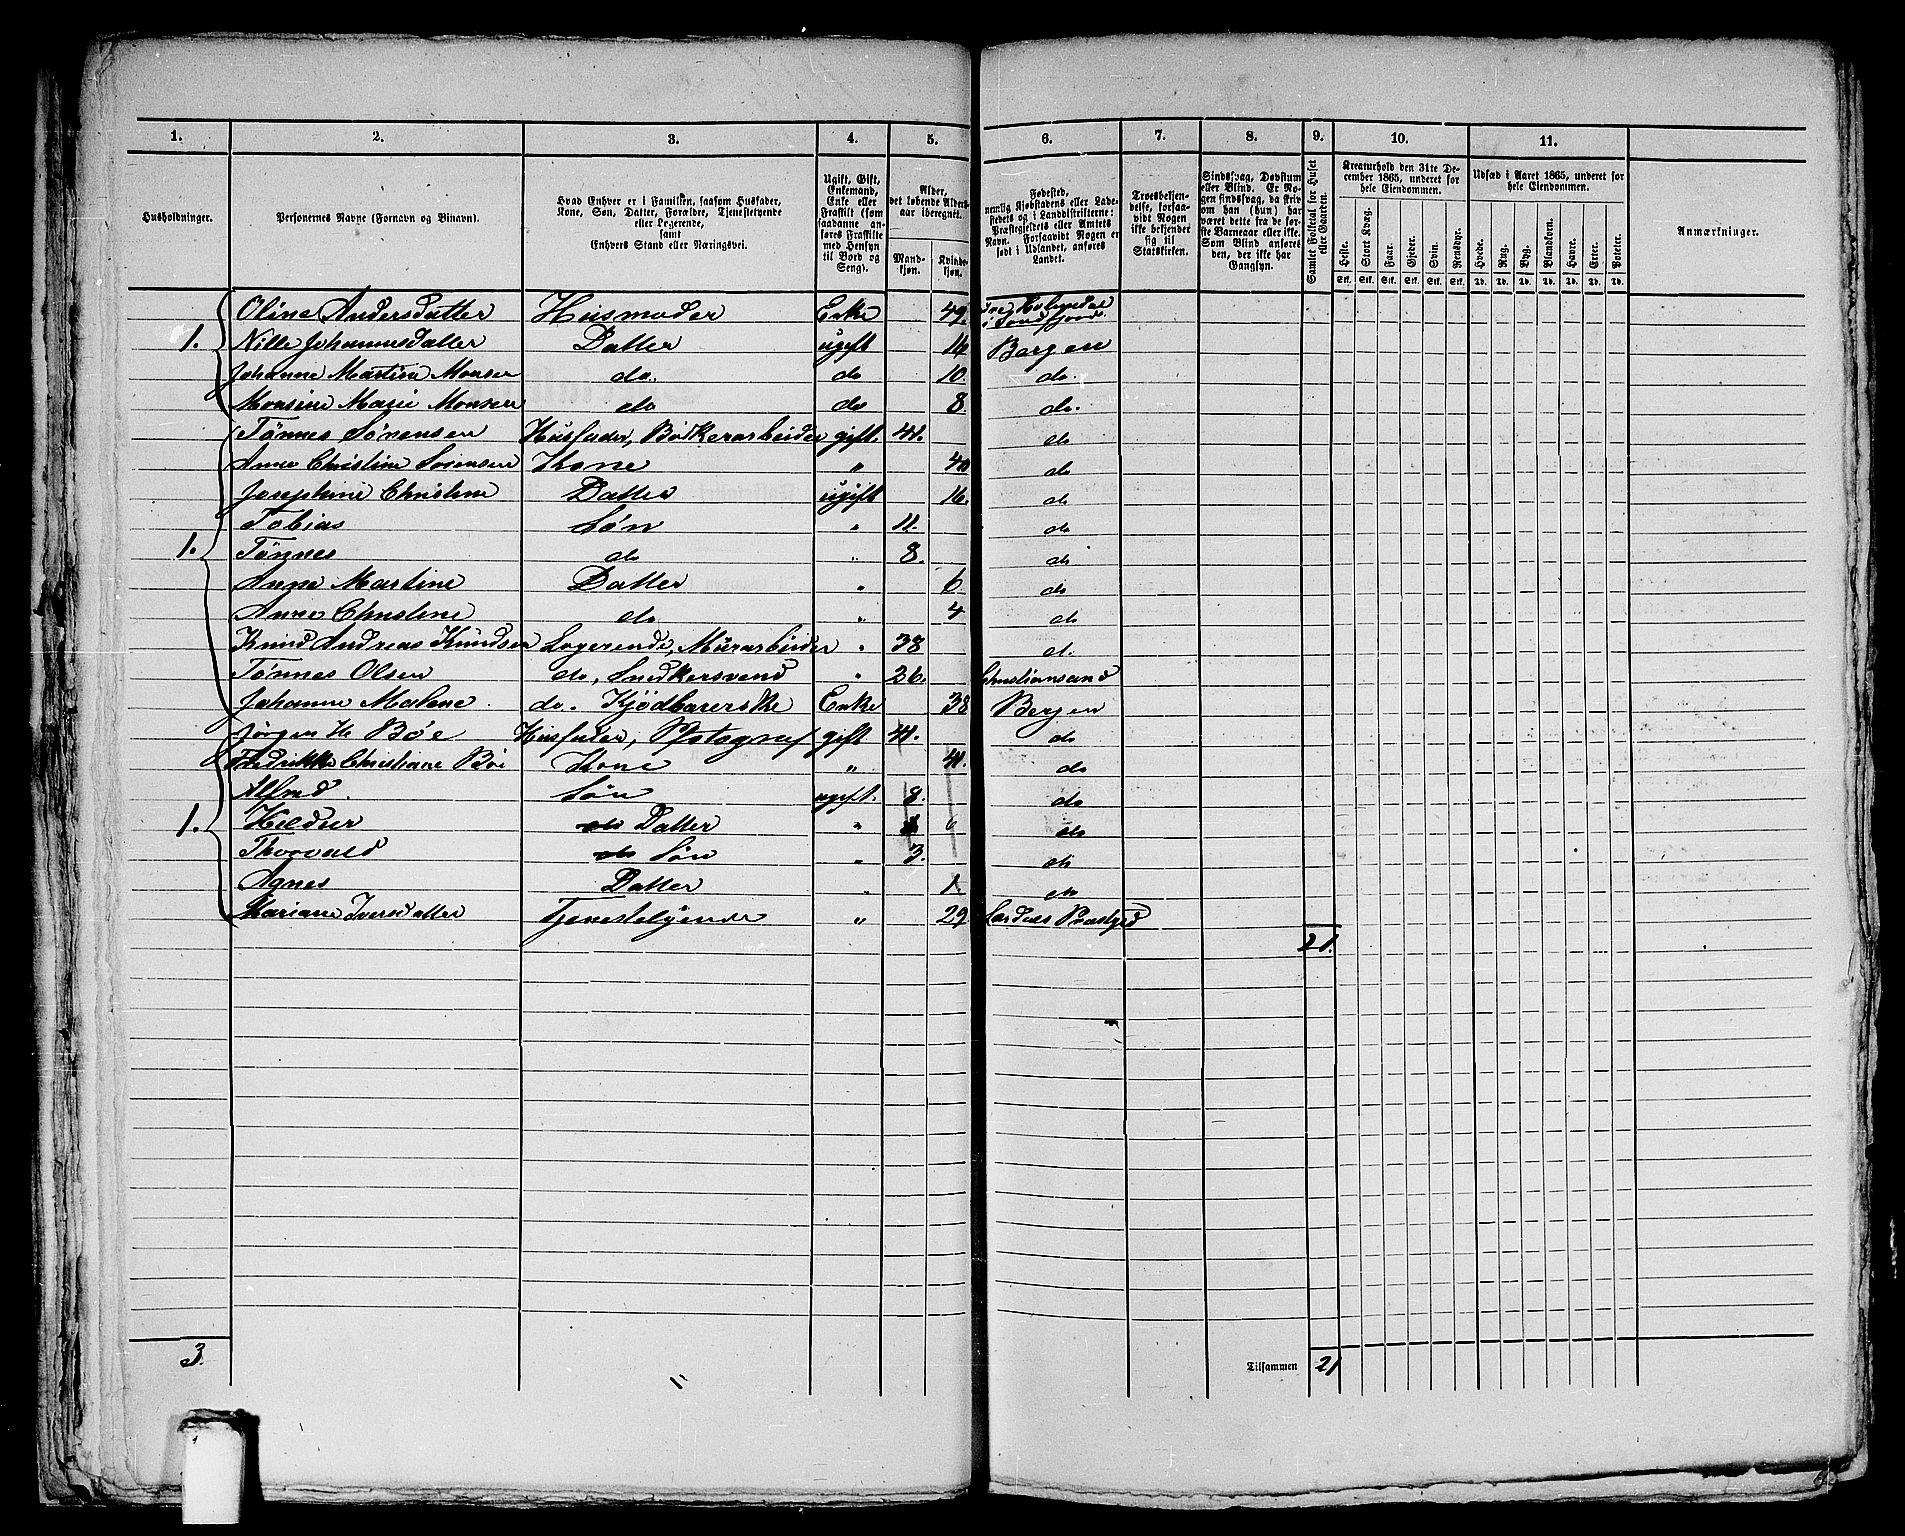 1. 2. 3. 4. 5. 6. 7. 8. 9. 10. 11.
Husholdninger.
Personernes Navne (Fornavn og Binavn).
Hvad Enhver er i Familien, saasom Husfader,
Kone, Søn, Datter, Forældre, Tjenestetyende
eller Logerende,
samt
Enhvers Stand eller Næringsvei.
Ugift, Gift,
Enkemand,
Enke eller
Fraskilt (som
saadanne an-
føres Fraskilte
med Hensyn
til Bord og
Seng).
Alder,
det løbende Alders-
aar iberegnet.
Mand-
kjøn.
Kvinde-
kjøn.
Fødested,
nemlig Kjøbstadens eller Lade-
stedets og i Landdistrikterne:
Præstegjeldets eller Amtets
Navn. Forsaavidt Nogen er
født i Udlandet, anføres
Landet.
Troesbekjen-
delse, forsaa-
vidt Nogen
ikke bekjender
sig til
Statskirken.
Sindssvag, Døvstum
eller Blind. Er No-
gen sindssvag, da skriv
om han (hun) har
været dette fra de før-
ste Barneaar eller ikke.
Som Blind anføres
den, der ikke har
Gangsyn.
Samlet Folketal for Huset
eller Gaarden.
Kreaturhold den 31te De-
cember 1865, underet for
hele Eiendommen.
Heste. Stort Kvæg. Faar. Gjeder. Svin. Rensdyr.
Stk. Stk. Stk. Stk. Stk. Stk.
Udsæd i Aaret 1865, underet for
hele Eiendommen.
Hvede. Rug. Byg. Blandkorn. Havre. Erter. Poteter.
Td. Td. Td. Td. Td. Td. Td.
Anmærkninger.
Oline Andersdatter Husmoder Enke 49.
1. Nille Johannesdatter Datter ugift 16 Bergen
Johanne Martine Monsen do. do 10. do.
Monsine Marie Monsen do do 8. do.
Tönnes Sörensen Husfader, Bödkerarbeider gift. 41. do
Anne Christine Sörensen Kone " 40 do
Josephine Christine Datter ugift 16. do
Tobias Søn " 11. do
1. Tönnes do " 8. do
Anne Martine Datter " 6. do
Anne Christine do " 4 do
Knud Andreas Knudsen Logerende, Murarbeider " 38 d.
Tønnes Olsen do, Snedkersvend " 26. Christiansand
Johanne Malene do. Kjödbærerske Enke 38 Bergen
Jørgen H. Böe Husfader, Photograf gift 41. do
Fredrikke Christiane Böe Kone " 41. do
Alfred. Søn ugift. 8. do
1. Hildur do Datter " 6 do
Thorvald do Søn " 3. do
Agnes Datter " 1. do
Mariane Iversdatter Tjenestetyende " 29
21.
3. Tilsammen 21